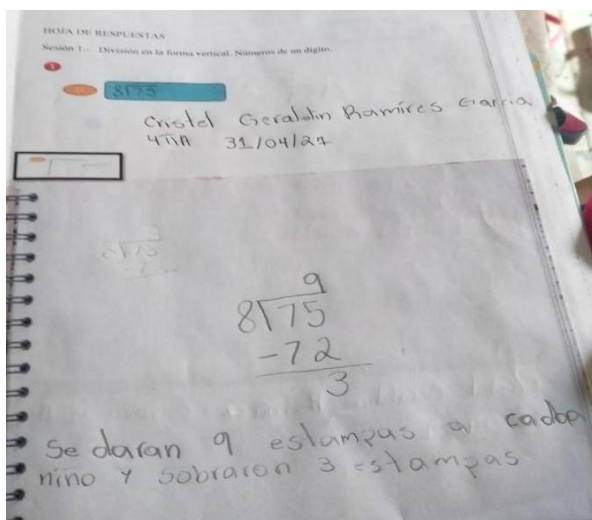 HOJA DE RESPUESTAS
Sesión 1.- División en la forma vertical. Números de un dígito.
1
8√75
Cristel Geraldin Ramíres Garcia
31/04/21
9
8√75
-72
3
Se daran 9 estampas a cada
niño y sobraron 3 estampas